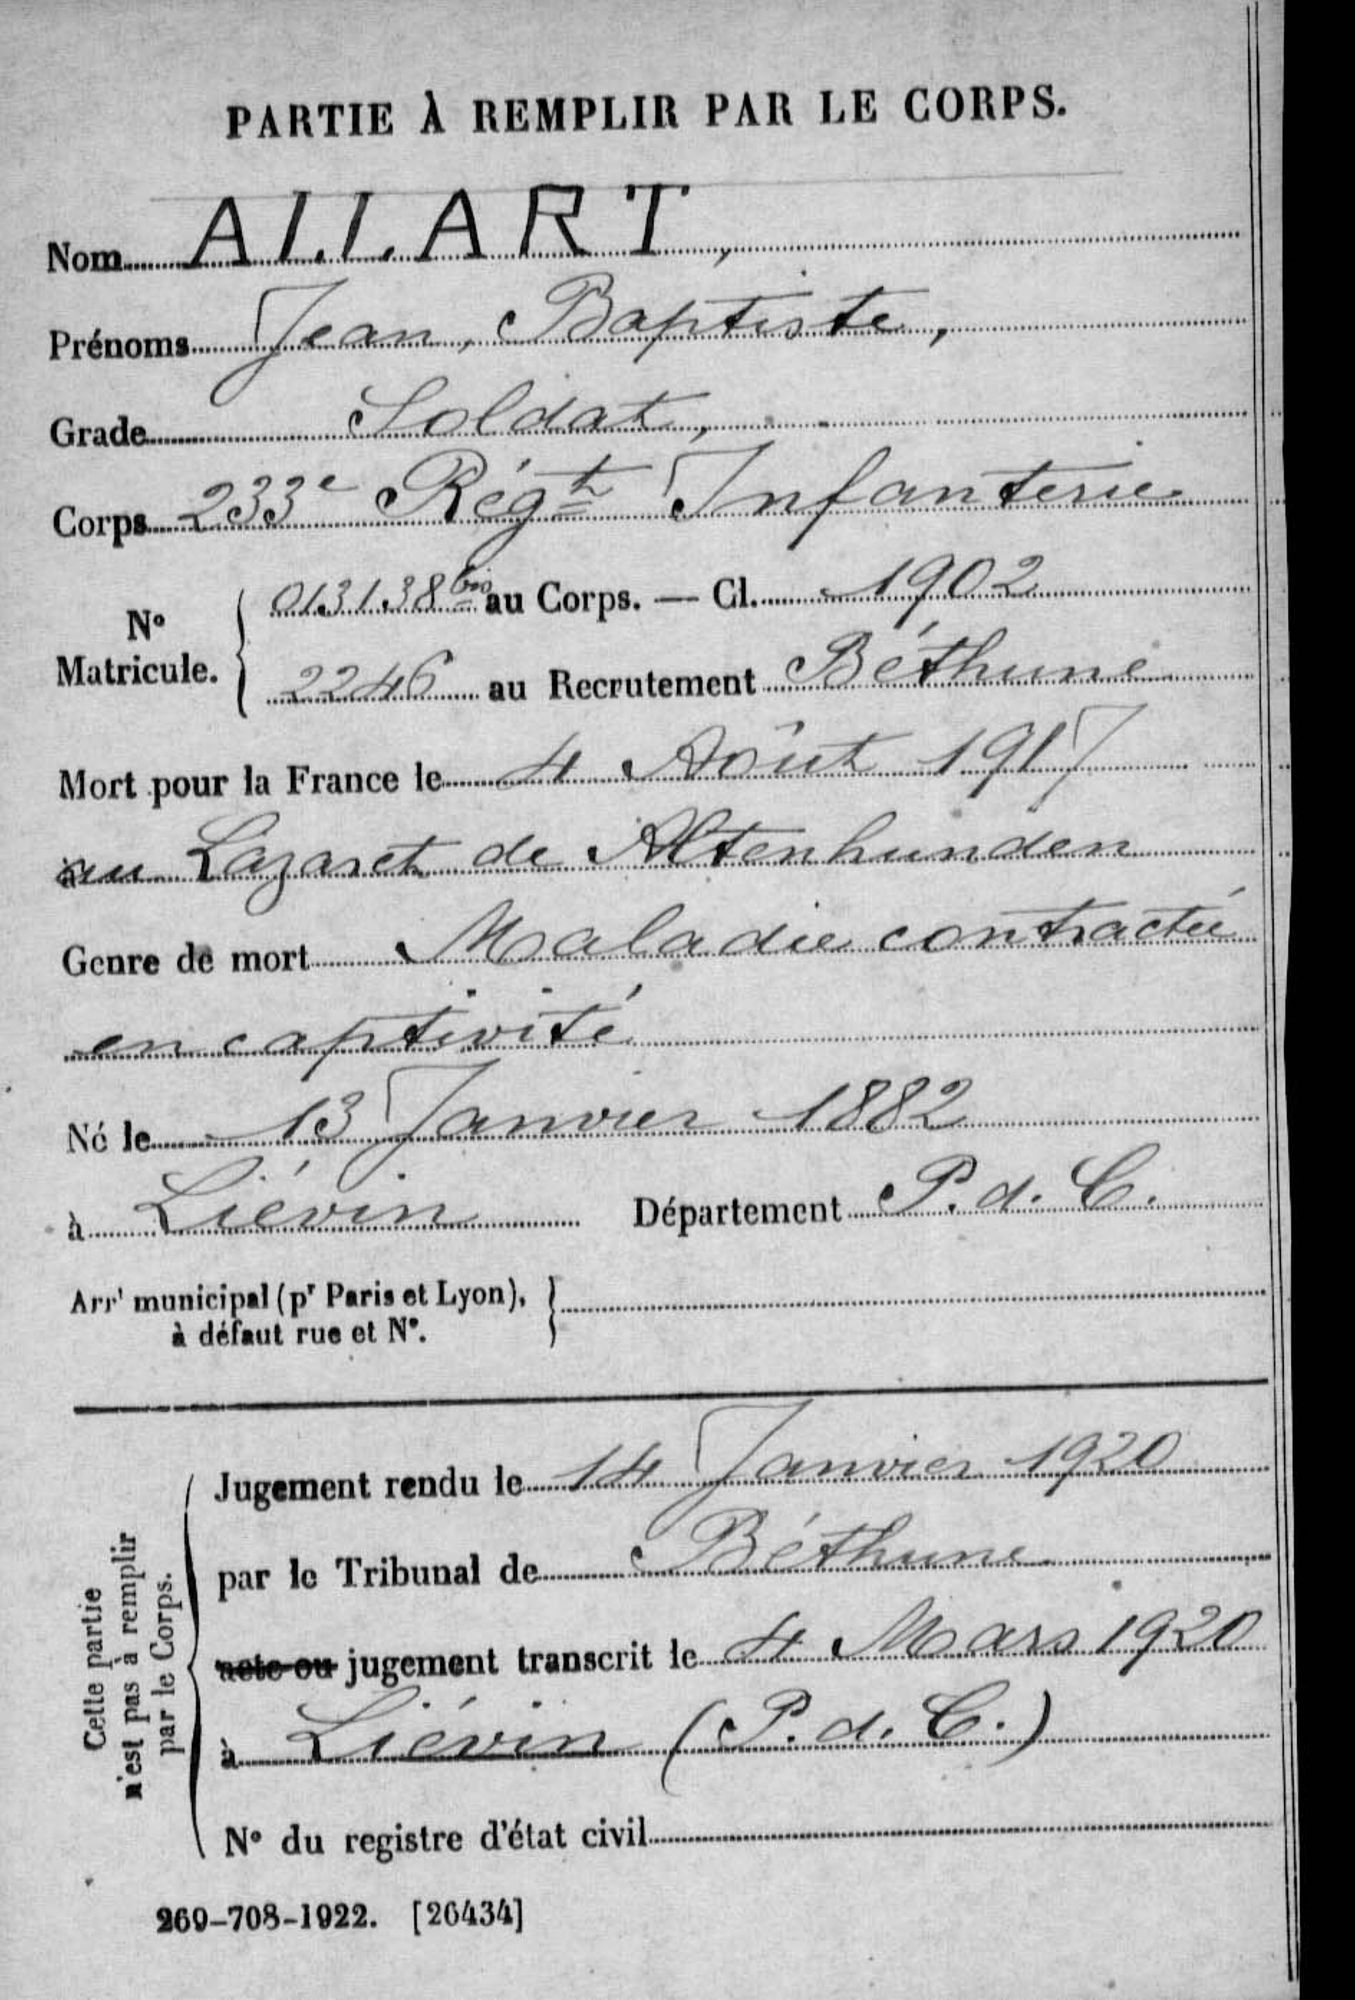 PARTIE À REMPLIR PAR LE CORPS.
Nom ALLART,
Prénoms Jean, Baptiste,
Grade Soldat,
Corps 233e Régt Infanterie
N° Matricule. 013138 bis au Corps. — Cl. 1902
2246 au Recrutement Béthune
Mort pour la France le 4 Août 1917
au Lazaret de Altenhunden
Genre de mort Maladie contractée
en captivité
Né le 13 Janvier 1882
à Liévin Département P. d. C.
Arrt municipal (pr Paris et Lyon),
à défaut rue et N°.
Cette partie
n'est pas à remplir
par le Corps.
Jugement rendu le 14 Janvier 1920
par le Tribunal de Béthune
acte ou jugement transcrit le 4 Mars 1920
à Liévin (P. d. C.)
N° du registre d'état civil
269-708-1922. [26434]